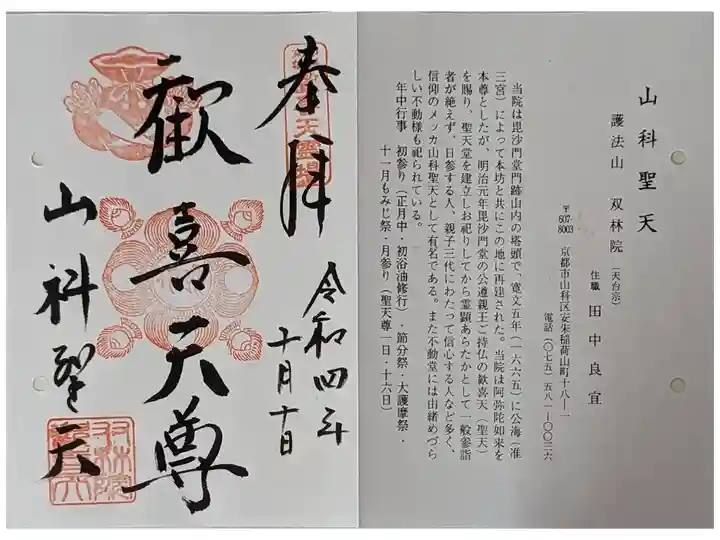 奉拝
歓喜天尊
令和四年
十月十日
山科聖天
双林院
山科聖天
護法山 双林院(天台宗)
住職 田中良宜
〒607-8003 京都市山科区安朱稲荷山町十八ー一
電話(〇七五)五八一ー〇〇三六
当院は毘沙門堂門跡山内の塔頭で、寛文五年(一六六五)に公海(准
三宮)によって本坊と共にこの地に再建された。当院は阿弥陀如来を
本尊としたが、明治元年毘沙門堂の公遵親王ご持仏の歓喜天(聖天)
を賜り、聖天堂を建立しお祀りしてから霊顕あらたかとして一般参詣
者が絶えず、日参する人、親子三代にわたって信心する人など多く、
信仰のメッカ山科聖天として有名である。また不動堂には由緒めづら
しい不動様も祀られている。
年中行事 初参り(正月中・初浴油修行)・節分祭・大護摩祭・
十一月もみじ祭・月参り(聖天尊一日・十六日)